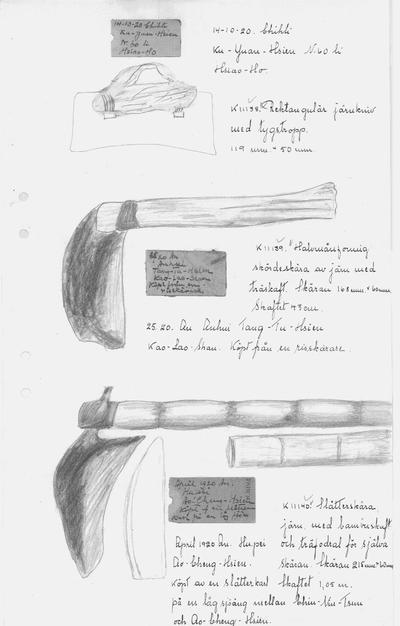 14-10-20 Chihli
Ku-Yuan-Hsien
N 60 li
Hsiao-Ho
14-10-20. Chihli
Ku-Yuan-Hsien N.60 li
Hsiao-Ho.
K11138. Rektangulär järnkniv
med tygstropp.
119 mm - 50 mm.
Kao-Lao-Shan
K11139. Halvmånformig
skördeskära av järn med
träskaft. Skäran 168 mm.
Skaftet 43 cm.
25.20. An Anhui Tang-Tu-Hsien
Kao-Lao-Shan. Köpt från en risskärare.
April 1920 An.
Hupei
Ao-Cheng-Hsien
K11140. Slåtterskära,
järn, med bambuskaft
och träfodral för själva
skäran. Skäran 215 mm
Skaftet 1,05 m.
April 1920 An. Hupei
Ao-Cheng-Hsien.
Köpt av en slåtterkarl
på en lång sjöäng mellan Chin-Ku-Tsun
och Ao-Cheng-Hsien.